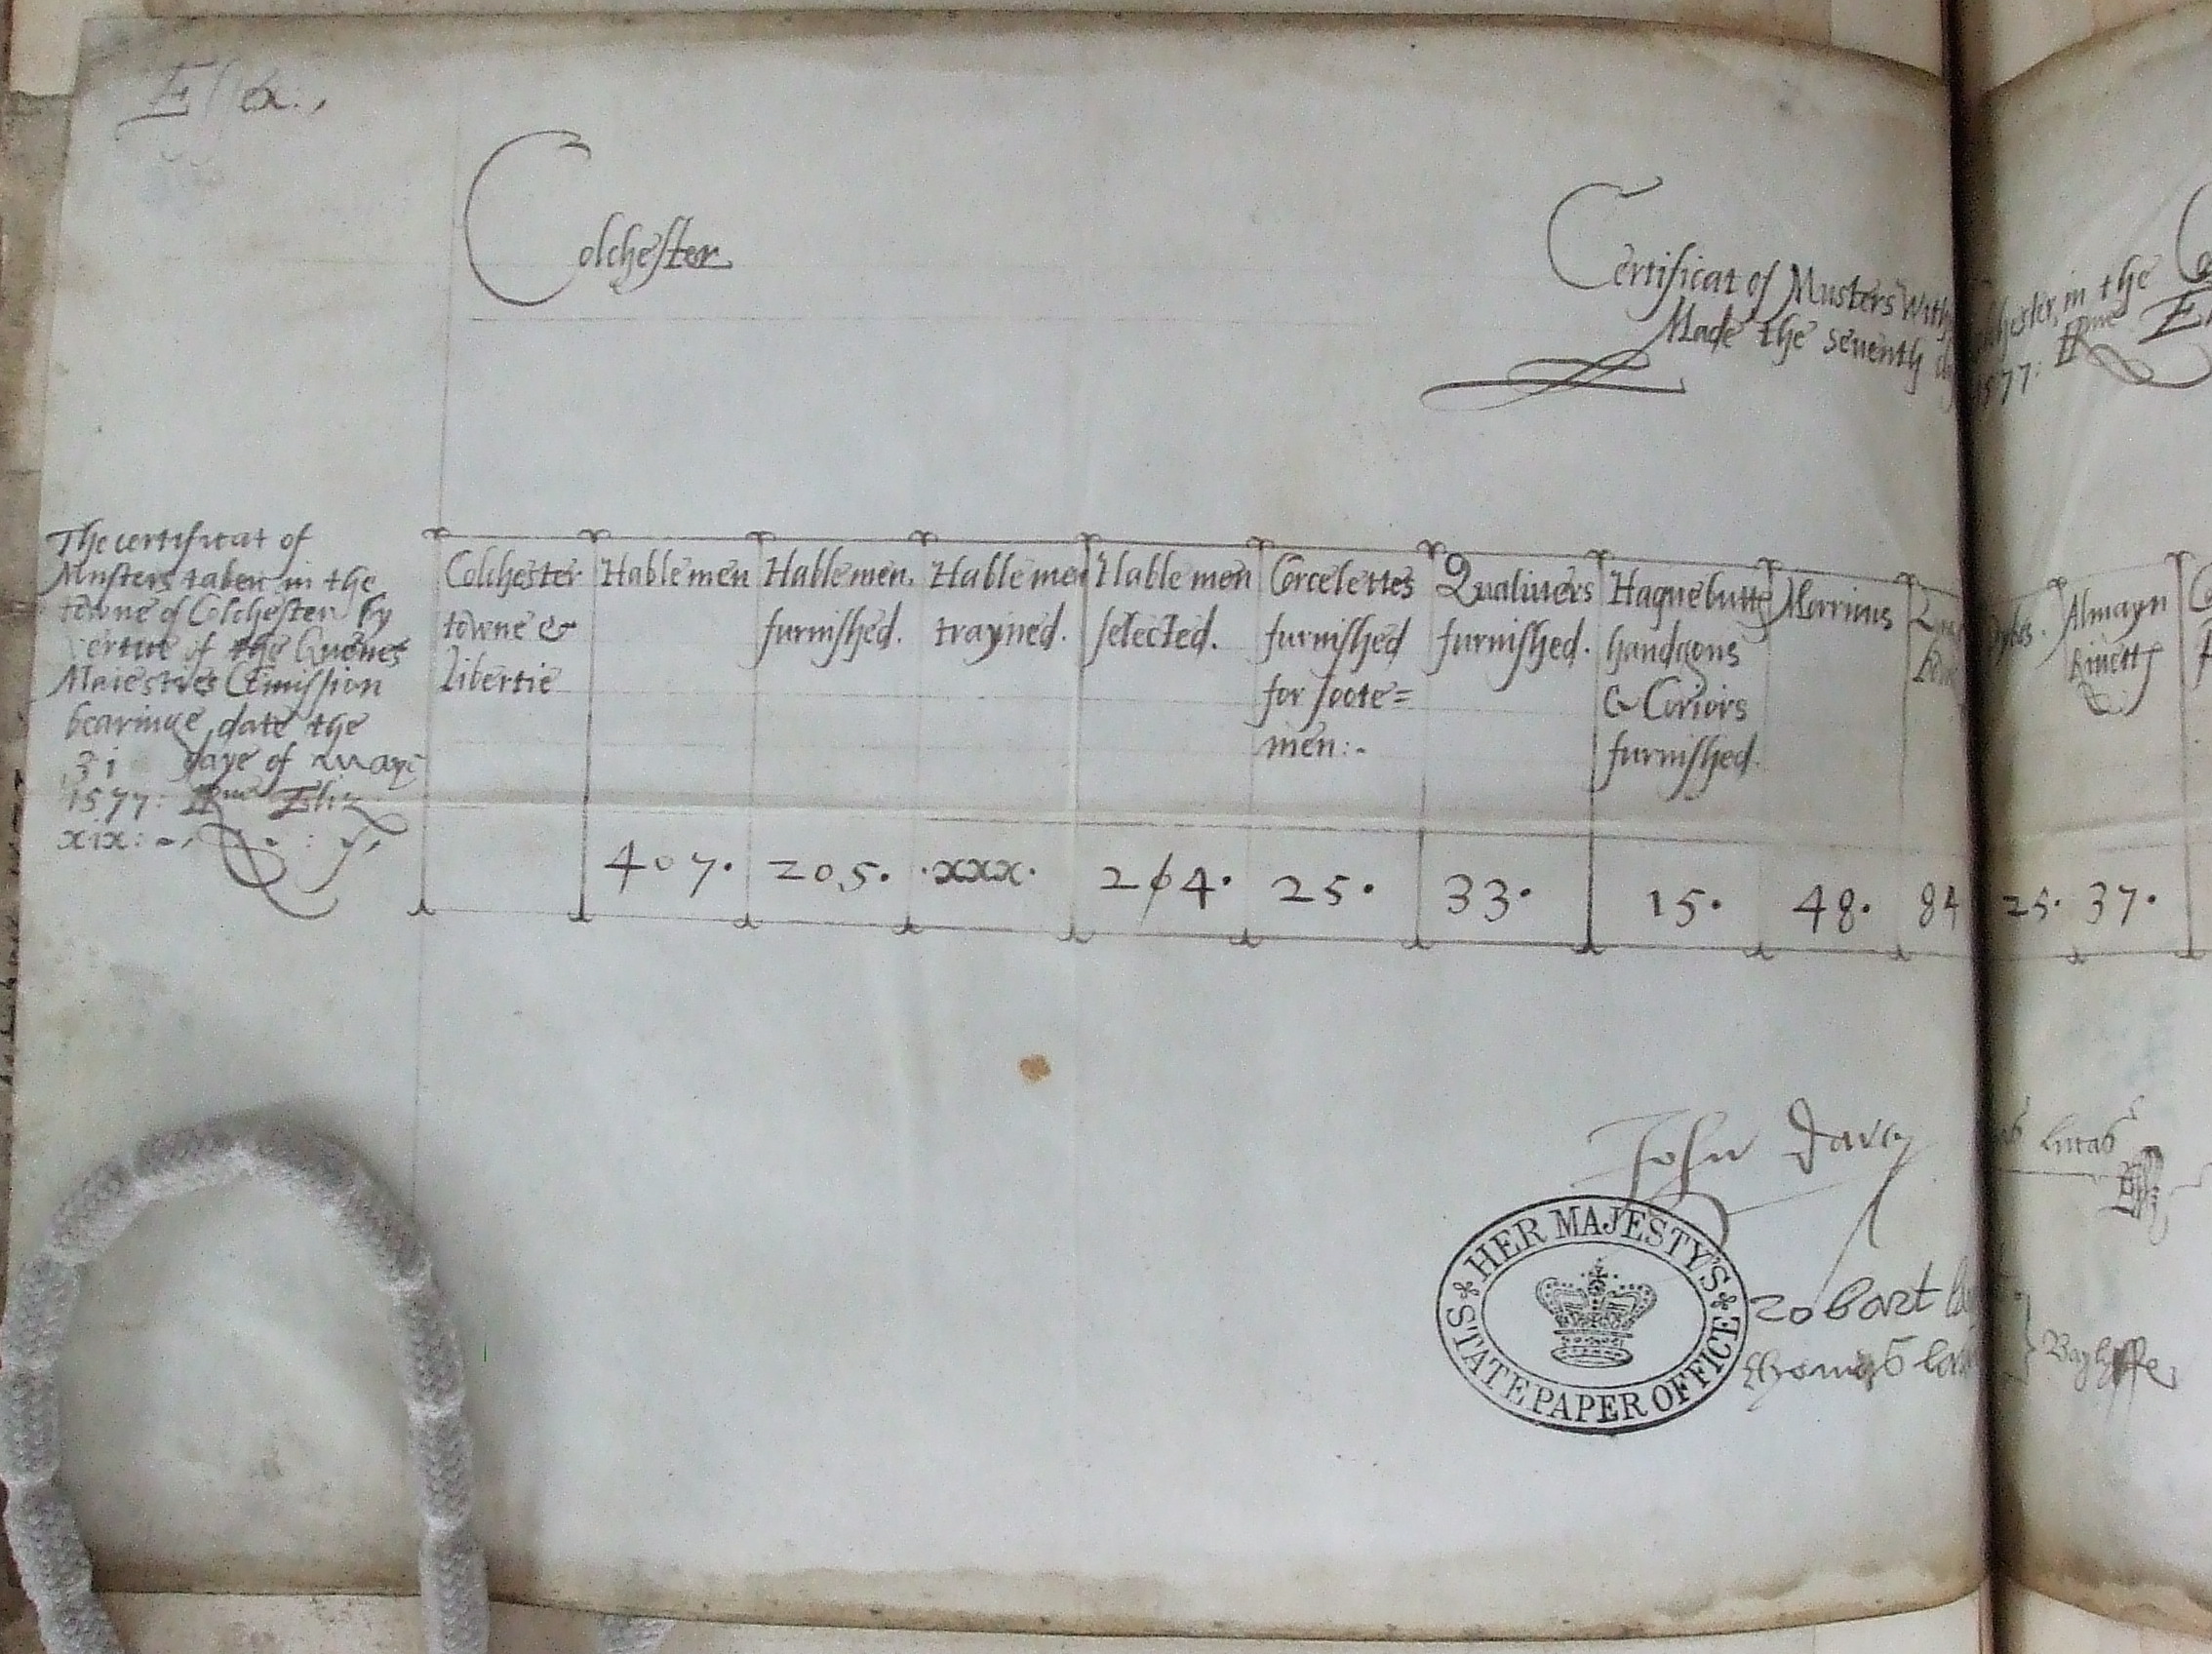 Essex.,
Colchester
Certificat of Musters With
Made the seuenth
in the
1577:
The certificat of
Musters taken in the
towne of Colchester by
vertue of the Quenes
Maiesties Comission
bearinge date the
31 daye of Maye
1577: Eliz
xix:
Colchester
towne &
libertie
Hable men
Hable men.
furnished.
Hable men
trayned.
Hable men
selected.
Corcelettes
furnished
for foote=
men:-
Qualiuers
furnished.
Haquebutts
handgons
& Coriors
furnished.
Morrions
Almayn
Rivetts
407. 205. .xxx. 204. 25. 33. 15. 48. 84 25. 37.
John Davy
Lucas
HER MAJESTY'S
STATE PAPER OFFICE
Robart
Thomas
Baylyffes